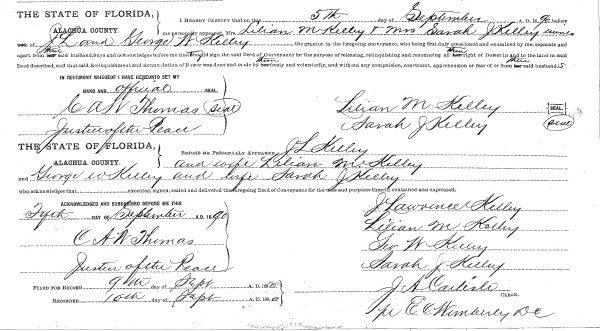 THE STATE OF FLORIDA,
ALACHUA COUNTY.
I HEREBY CERTIFY that on this 5th day of September A. D. 1890 before
me personally appeared Mrs Lilian M Kelley & Mrs Sarah J Kelley wives
J L and George W Kelley the grantor in the foregoing conveyance, who being first duly examined by me, separate and
apart from their said husbands, says and acknowledges
Deed described, and that said Relinquishment and renunciation of Dower was done and made by freely and voluntarily, and without any compulsion, constraint, apprehension or fear of or from said husbands
IN TESTIMONY WHEREOF I HAVE HEREUNTO SET MY
HAND AND official SEAL.
C A W Thomas (Seal)
Justice of the Peace
Lilian M Kelley SEAL
Sarah J Kelley (Seal)
THE STATE OF FLORIDA,
ALACHUA COUNTY.
BEFORE ME PERSONALLY APPEARED J L Kelley
and wife Lilian M Kelley
and George W Kelley and wife Sarah J Kelley
who acknowledge that executed, signed, sealed and delivered the foregoing Deed of Conveyance for the uses and purposes therein contained and expressed.
ACKNOWLEDGED AND SUBSCRIBED BEFORE ME THIS
Fifth DAY OF September A.D. 1890
C A W Thomas
Justice of the Peace
J Lawrence Kelley
Lilian M Kelley
Geo W Kelley
Sarah J Kelley
FILED FOR RECORD 9th day of Sept A. D. 1890
RECORDED 10th day of Sept A. D. 1890
J A Carlisle CLERK.
pr E C Wimberley DC